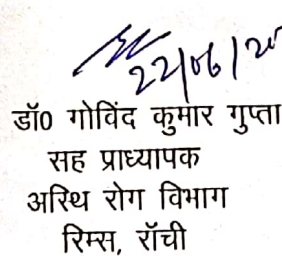 22/06/20
डॉ0 गोविंद कुमार गुप्ता
सह प्राध्यापक
अस्थि रोग विभाग
रिम्स, राँची